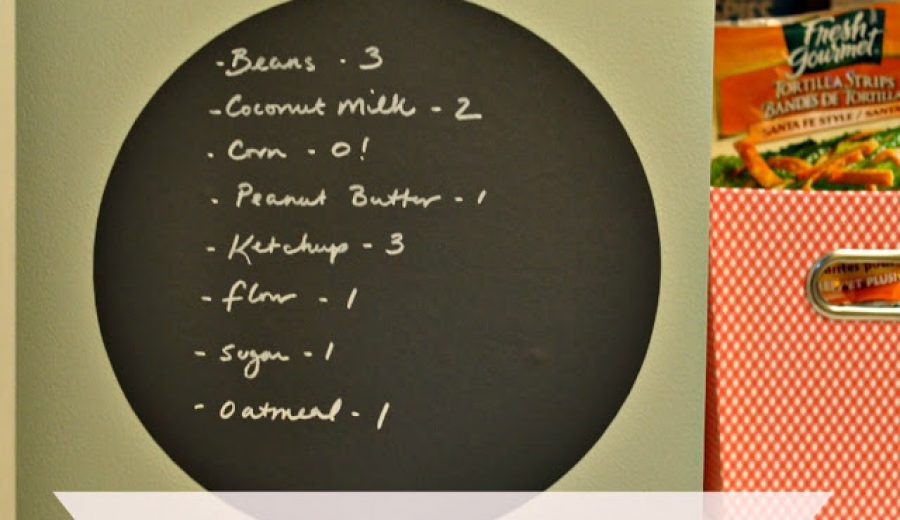 - Beans - 3
- Coconut Milk - 2
- Corn - 0!
- Peanut Butter - 1
- Ketchup - 3
- flour - 1
- Sugar - 1
- Oatmeal - 1
Fresh
Gourmet
TORTILLA STRIPS
BANDES DE TORTILLA
SANTA FE STYLE / SANTA